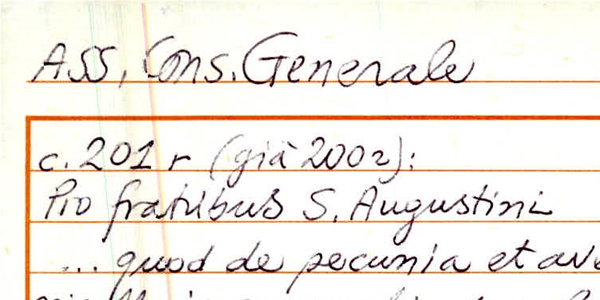 ASS, Cons. Generale
c. 201 r (già 200 r):
Pro fratribus S. Augustini
... quod de pecunia et ave